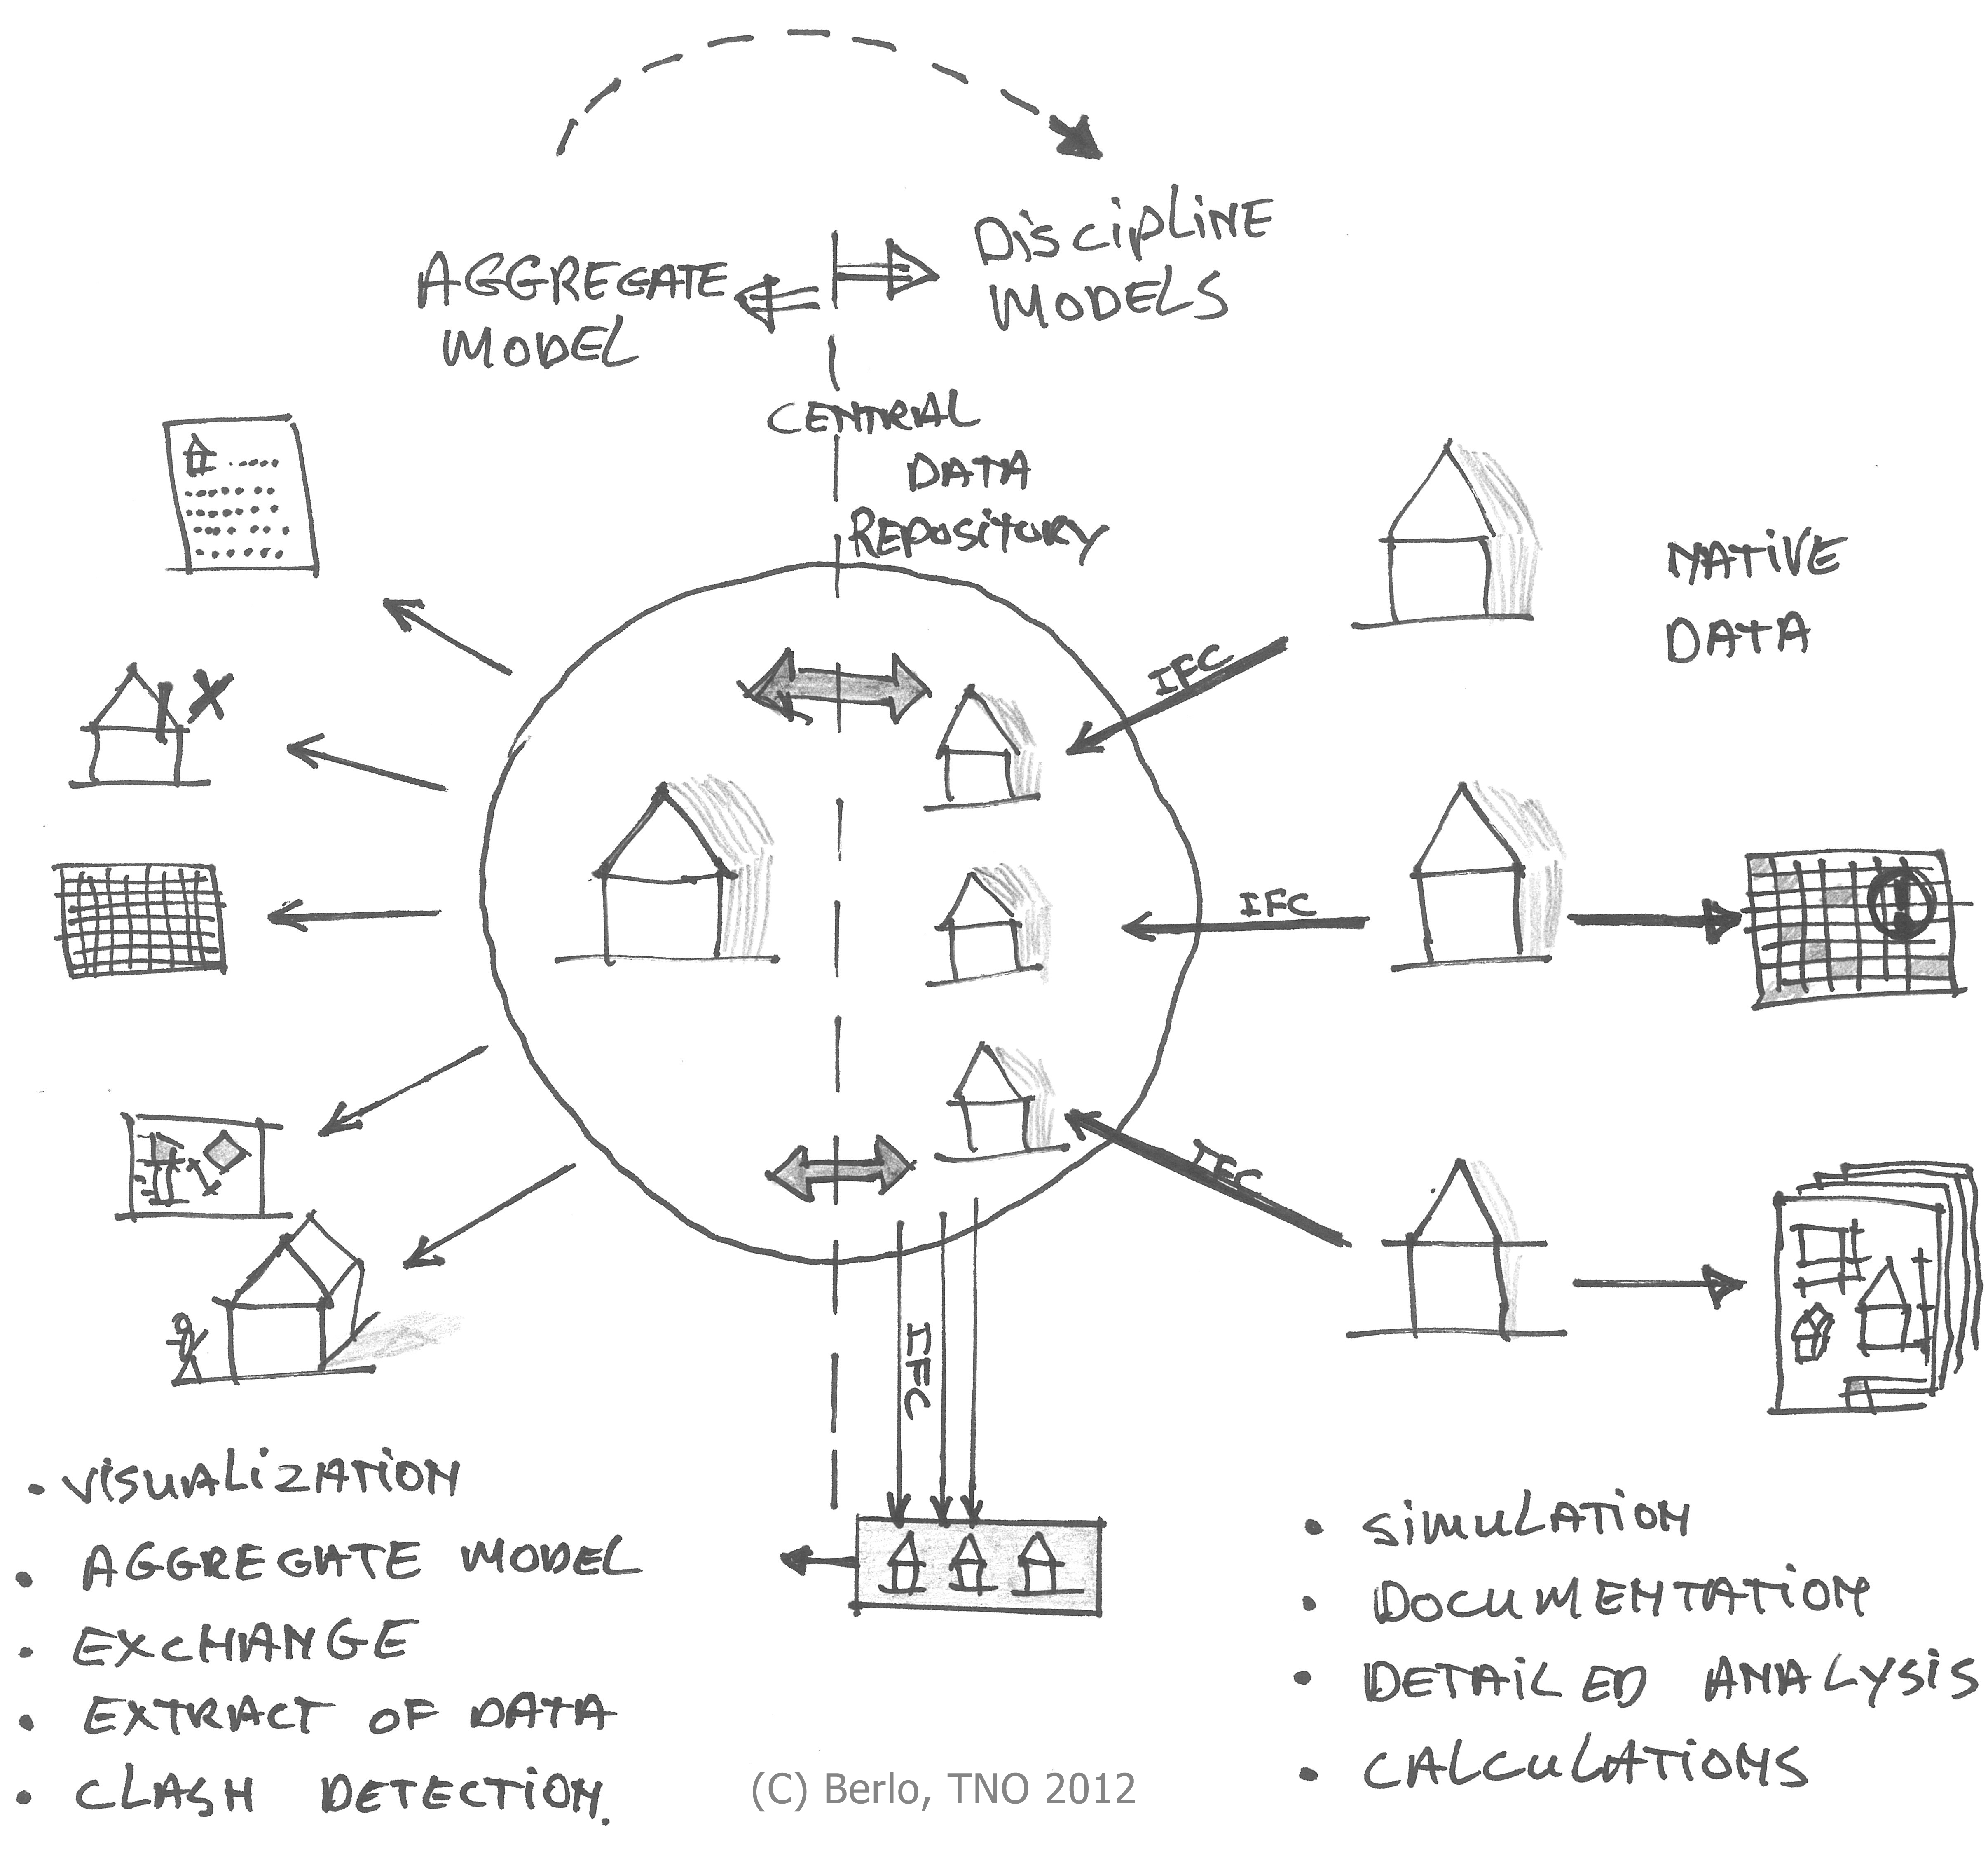 AGGREGATE
MODEL
DisciPLiNE
MODELS
CENTRAL
DATA
REPOSITORY
NATIVE
DATA
IFC
IFC
IFC
IFC
• VISUALIZATION
• AGGREGATE MODEL
• EXCHANGE
• EXTRACT OF DATA
• CLASH DETECTION.
• SIMULATION
• DOCUMENTATION
• DETAILED ANALYSIS
• CALCULATIONS
(C) Berlo, TNO 2012